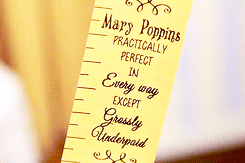 Mary Poppins
PRACTICALLY
PERFECT
IN
Every way
EXCEPT
Grossly
Underpaid